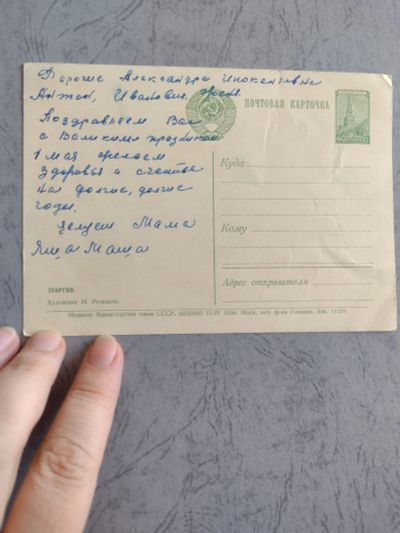 Дорогие Александра Инокентьевна
Антон, Иванович,
Поздравляем Вас
с Великим праздником
1 мая желаем
здоровья и счастье
на долгие, долгие
годы.
Целуем Мама
Яша Маша
ПОЧТОВАЯ КАРТОЧКА
40
Куда
Кому
Адрес отправителя
ГЕОРГИН.
Художник Н.
Издание Министерства связи СССР. 1956. Моск. печ. ф-ка Гознака. Зак.